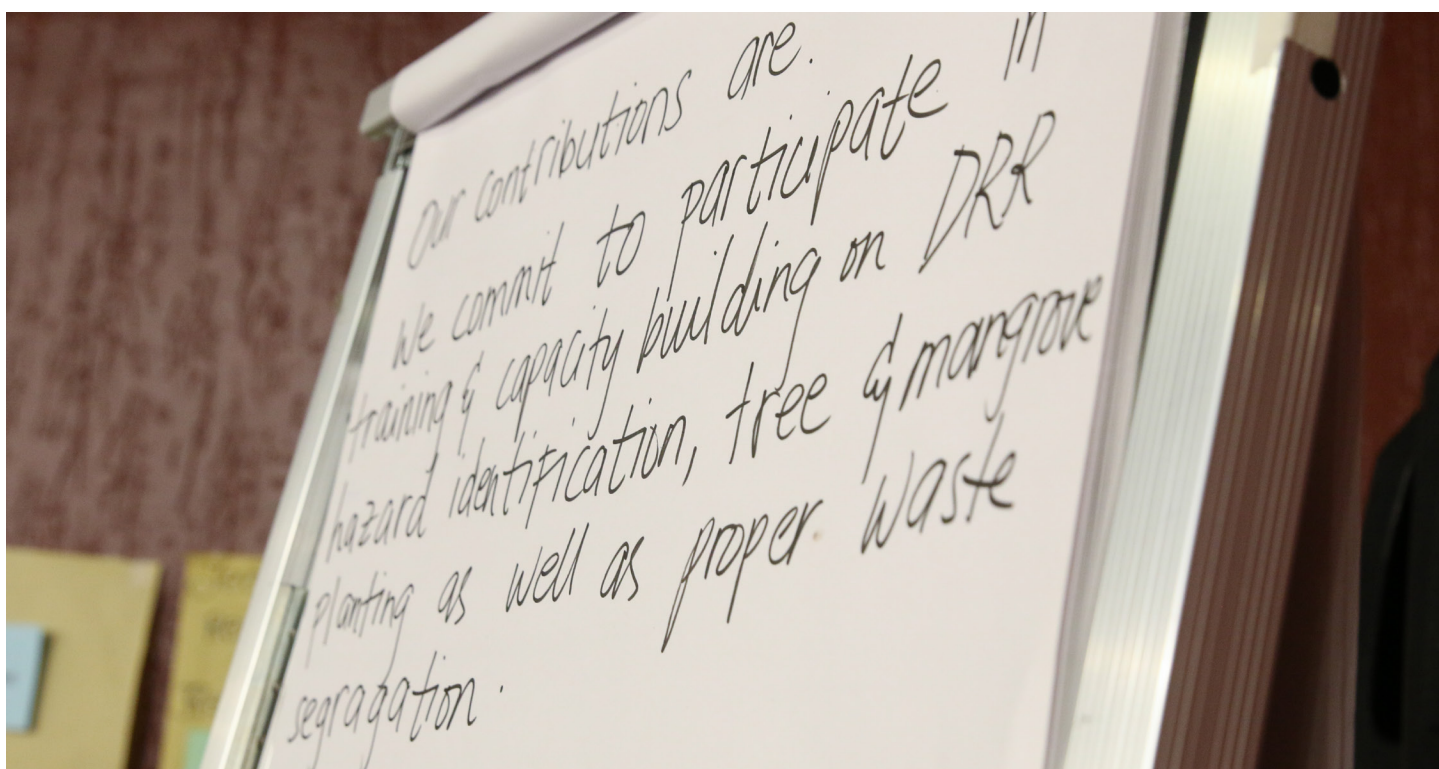 Our contributions are.
We commit to participate in
training & capacity building on DRR
hazard identification, tree & mangrove
planting as well as proper waste
segragation.